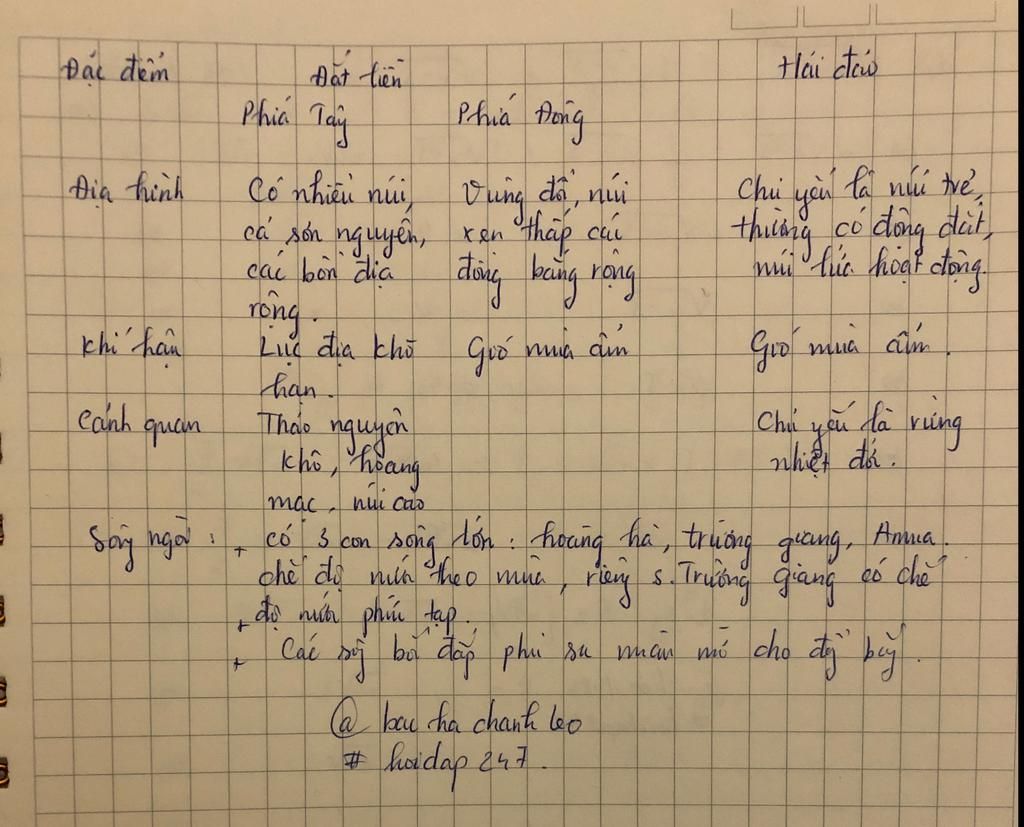 Đặc điểm Đất liền Hải đảo
Phía Tây Phía Đông
Địa hình Có nhiều núi, Vùng đồi, núi Chủ yếu là núi trẻ,
cả sơn nguyên, xen thấp các thường có động đất,
các bồn địa đồng bằng rộng núi lửa hoạt động.
rộng.
Khí hậu Lục địa khô Gió mùa ẩm Gió mùa ẩm.
hạn.
Cảnh quan Thảo nguyên Chủ yếu là rừng
khô, hoang nhiệt đới.
mạc, núi cao
Sông ngòi: + có 3 con sông lớn: hoàng hà, trường giang, Amua.
chế độ nước theo mùa, riêng s. Trường giang có chế
+ độ nước phức tạp.
+ Các sông bồi đắp phù sa màu mỡ cho đồng bằng.
@ bau ha chanh leo
# hoidap 247.